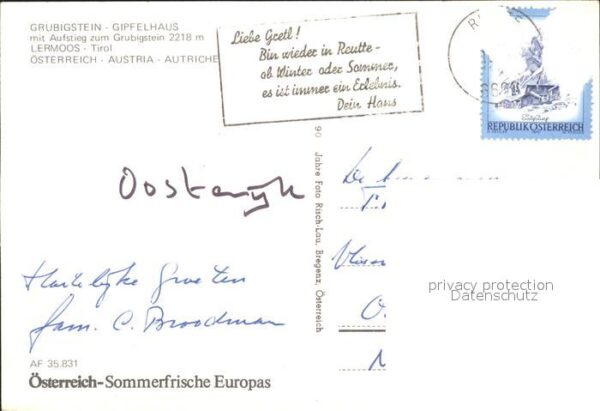 GRUBIGSTEIN - GIPFELHAUS
mit Aufstieg zum Grubigstein 2218 m
LERMOOS - Tirol
ÖSTERREICH - AUSTRIA - AUTRICHE
Liebe Gretl!
Bin wieder in Reutte-
ob Winter oder Sommer,
es ist immer ein Erlebnis.
Dein Hans
REPUBLIK ÖSTERREICH
90 Jahre Foto Risch-Lau, Bregenz, Österreich
Oostenrijk
Hartelijke Groeten
Fam. C. Broodman
privacy protection
Datenschutz
AF 35.831
Österreich-Sommerfrische Europas